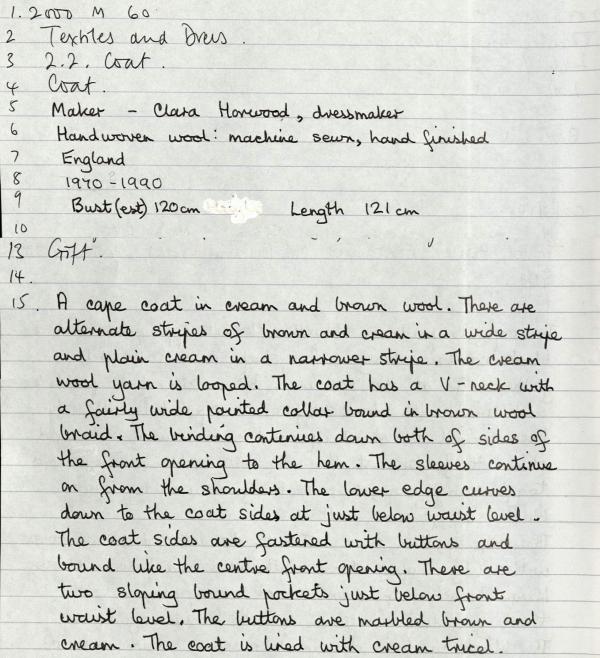 1. 2000 M 60
2 Textiles and Dress.
3 2.2. Coat.
4 Coat.
5 Maker - Clara Horwood, dressmaker
6 Handwoven wool: machine sewn, hand finished
7 England
8 1970-1990
9 Bust (est) 120cm Length 121 cm
10
13 Gift".
14.
15. A cape coat in cream and brown wool. There are
alternate stripes of brown and cream in a wide stripe
and plain cream in a narrower stripe. The cream
wool yarn is looped. The coat has a V-neck with
a fairly wide pointed collar bound in brown wool
braid. The binding continues down both of sides of
the front opening to the hem. The sleeves continue
on from the shoulders. The lower edge curves
down to the coat sides at just below waist level.
The coat sides are fastened with buttons and
bound like the centre front opening. There are
two sloping bound pockets just below front
waist level. The buttons are marbled brown and
cream. The coat is lined with cream tricel.